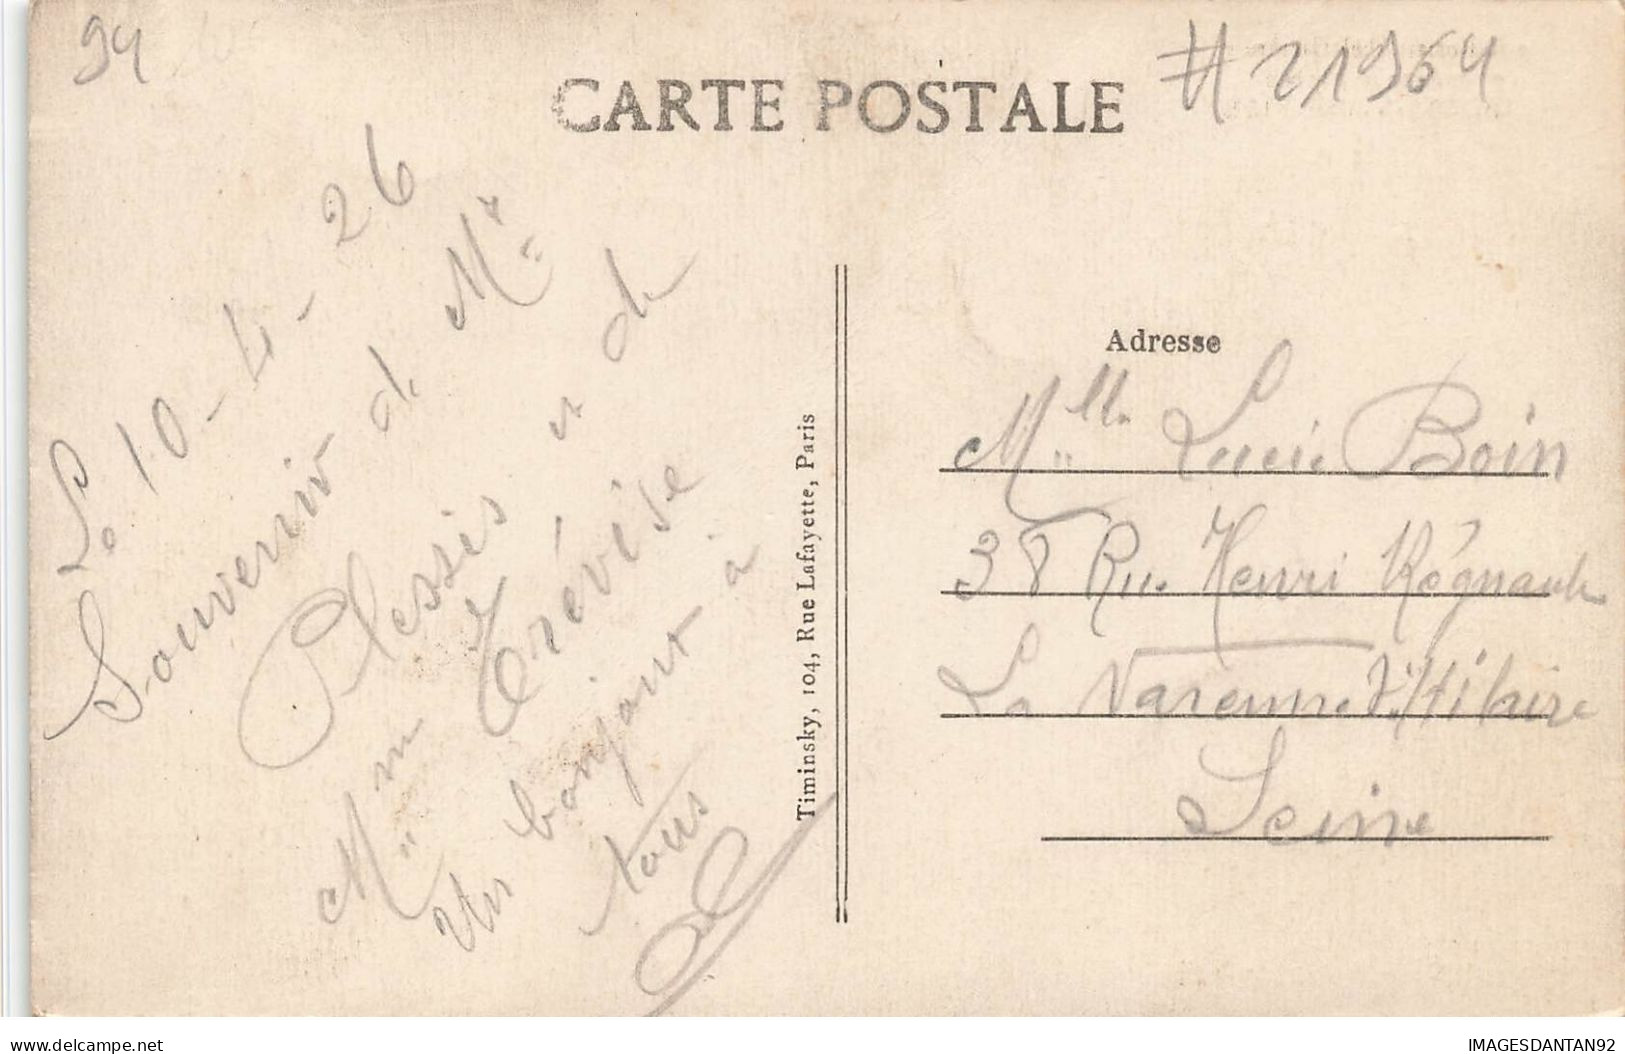 94
CARTE POSTALE
# 21964
Le 10-4-26
Souvenir de Mr
Plessis et de
Mme Trévise
Un bonjour à
tous
Timinsky, 104, Rue Lafayette, Paris
Adresse
Mlle Lucie Boin
38 Rue Henri Régnault
La Varenne St Hilaire
Seine
www.delcampe.net
IMAGESDANTAN92